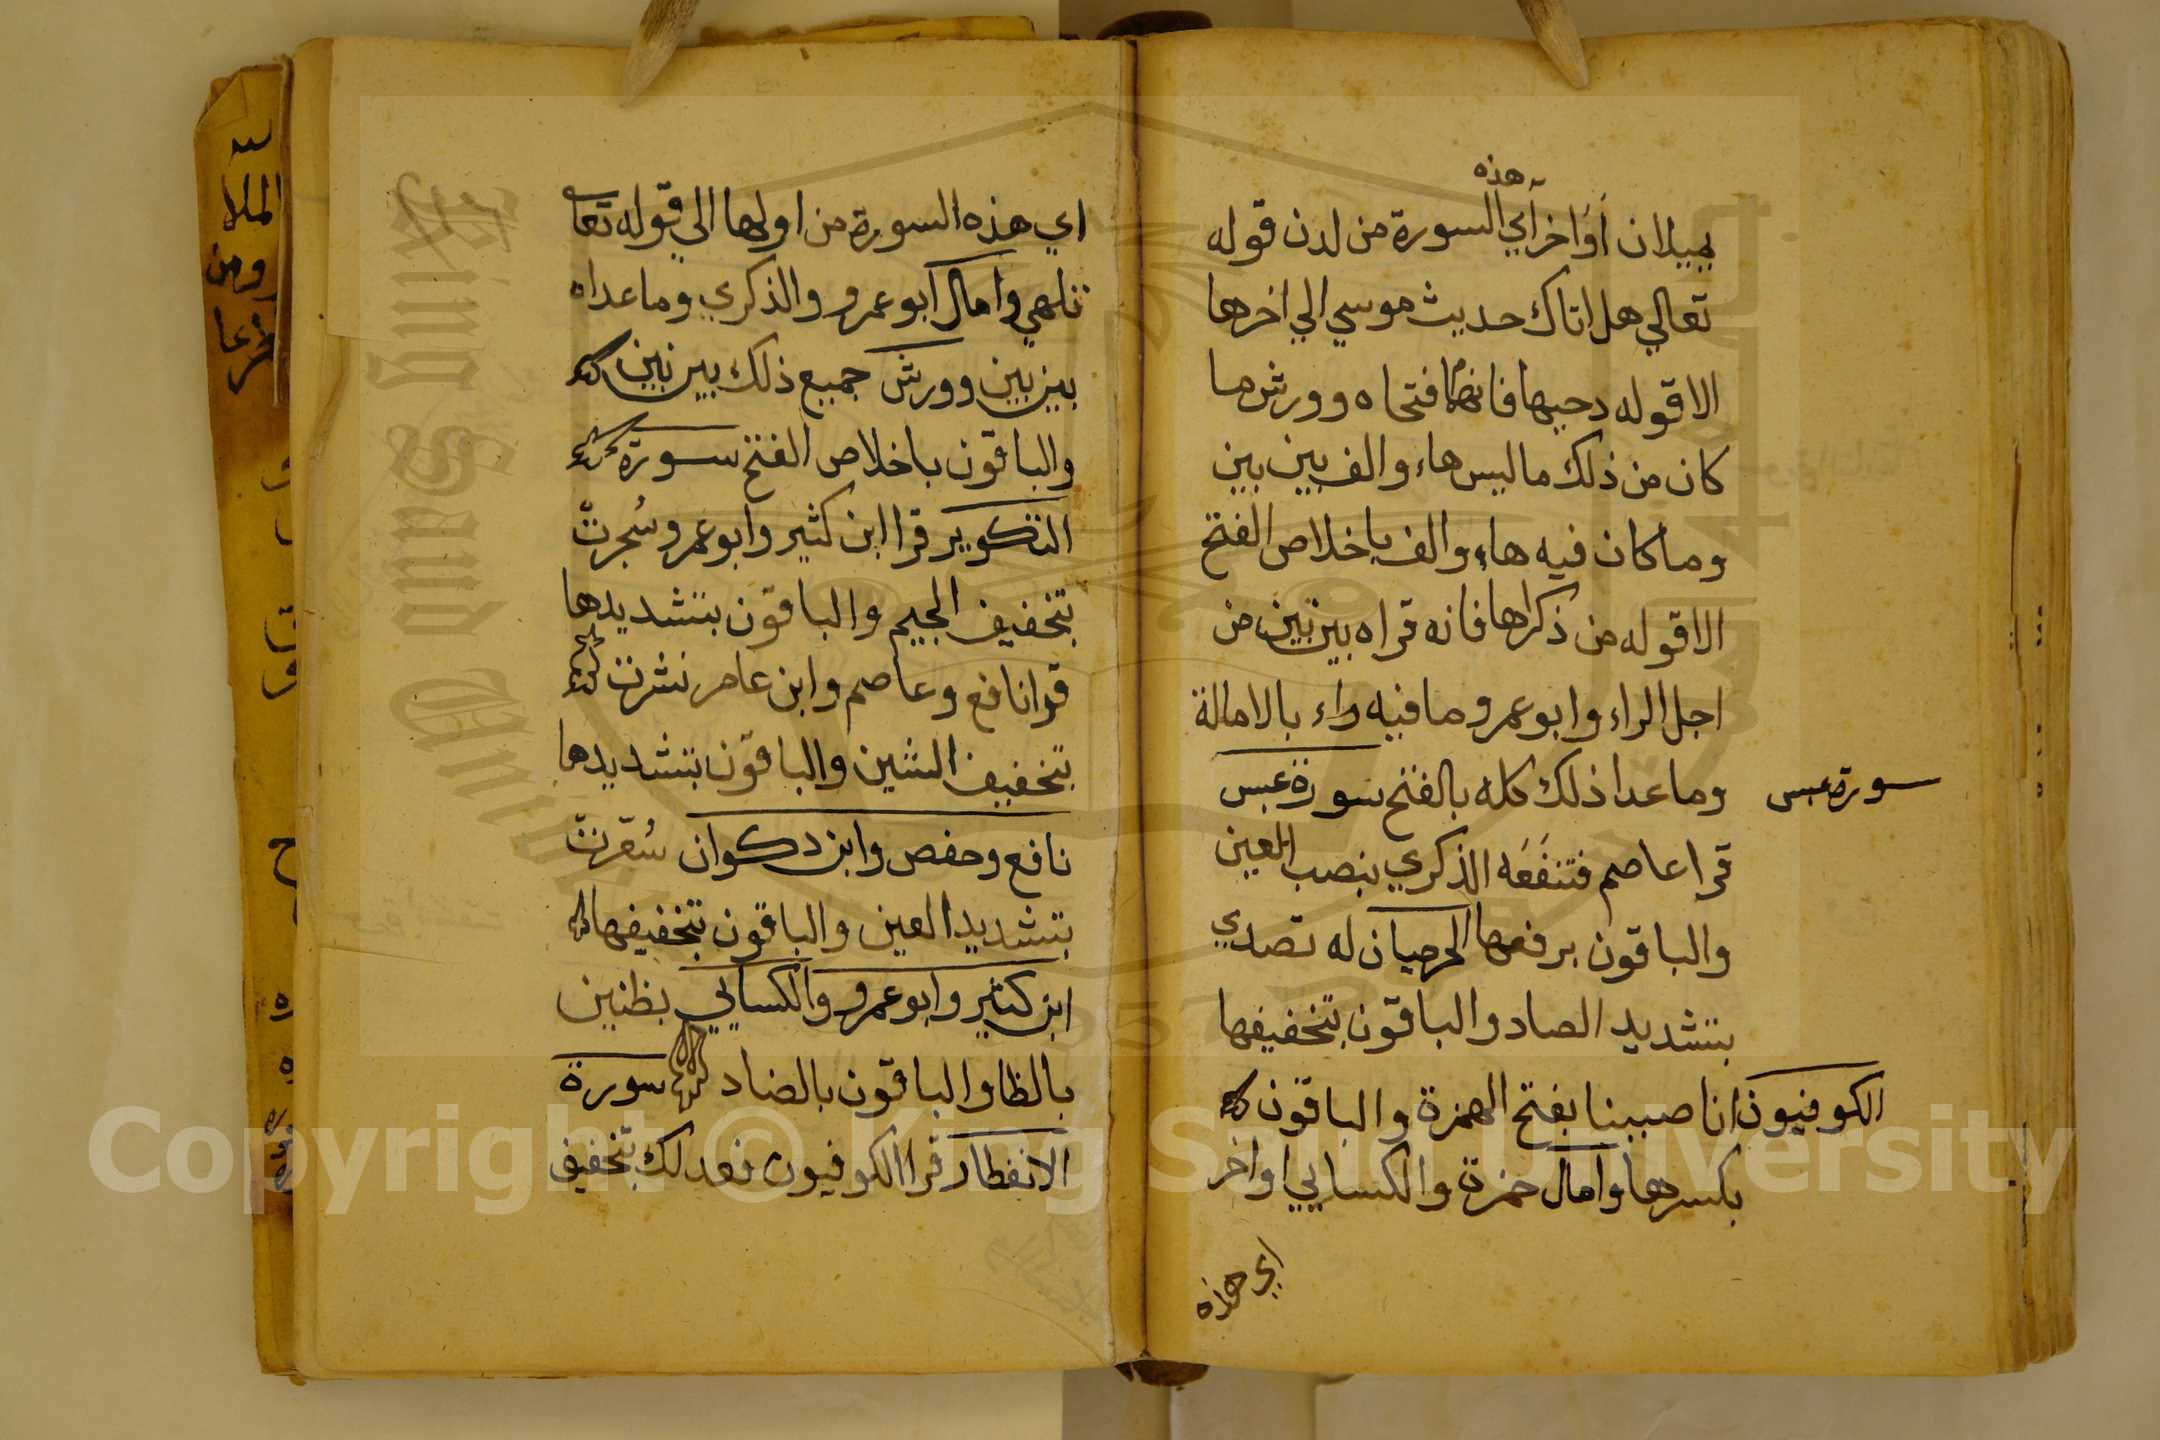 هذه
يميلان أَوَاخر آي السورة من لدن قوله
تعالي هل اتاك حديث موسي الي اخرها
الا قوله دحيها فانهما فتحاه وورش ما
كان من ذلك ما ليس هاء والف بين بين
وما كان فيه هاء والف باخلاص الفتح
الا قوله من ذكراها فانه قراه بين بين من
اجل الراء وابو عمرو ما فيه راء بالامالة
وما عدا ذلك كله بالفتح سورة عبس
سورة عبس
قرا عاصم فتنفَعَه الذكري بنصب العين
والباقون برفعها الحرميان له تصدي
بتشديد الصاد والباقون بتخفيفها
الكوفيون انا صببنا بفتح الهمزة والباقون
بكسرها وامال حمزة والكسايي اواخر
اي هذه
اي هذه السورة من اولها الي قوله تعا
تلهي وامال ابو عمرو والذكري وما عداه
بين بين وورش جميع ذلك بين بين
والباقون باخلاص الفتح سورة
التكوير قرا ابن كثير وابو عمرو سُجرتْ
بتخفيف الجيم والباقون بتشديدها
قرا نافع وعاصم وابن عامر نشرت
بتخفيف الشين والباقون بتشديدها
نافع وحفص وابن دكوان سُعّرتْ
بتشديد العين والباقون بتخفيفها
ابن كثير وابو عمرو والكسايي بظنين
بالظا والباقون بالضاد سورة
الانفطار قرا الكوفيون فعدلك بتخفيف
الملا
ومن
Copyright © King Saud University
King Saud University
1957